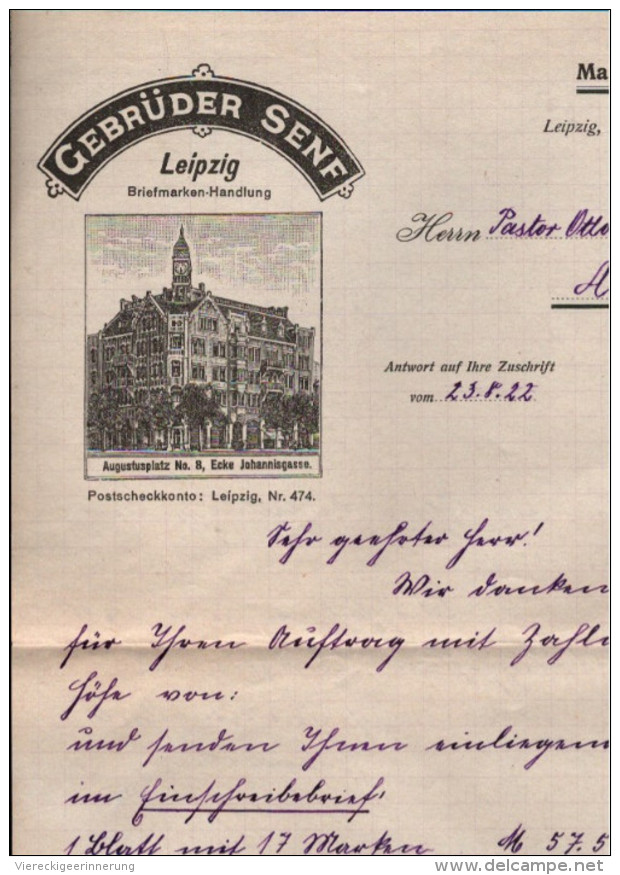 GEBRÜDER SENF
Leipzig
Briefmarken-Handlung
Augustusplatz No. 8, Ecke Johannisgasse.
Postscheckkonto: Leipzig, Nr. 474.
Ma
Leipzig,
Herrn Pastor Otto
Antwort auf Ihre Zuschrift
vom 23.8.22
Sehr geehrter Herr!
Wir danken
für Ihren Auftrag mit Zahl
Höhe von:
und senden Ihnen einliegen
im Einschreibebrief:
1 Blatt mit 17 Marken M 57.5
Viereckigeerinnerung
www.delcampe.net